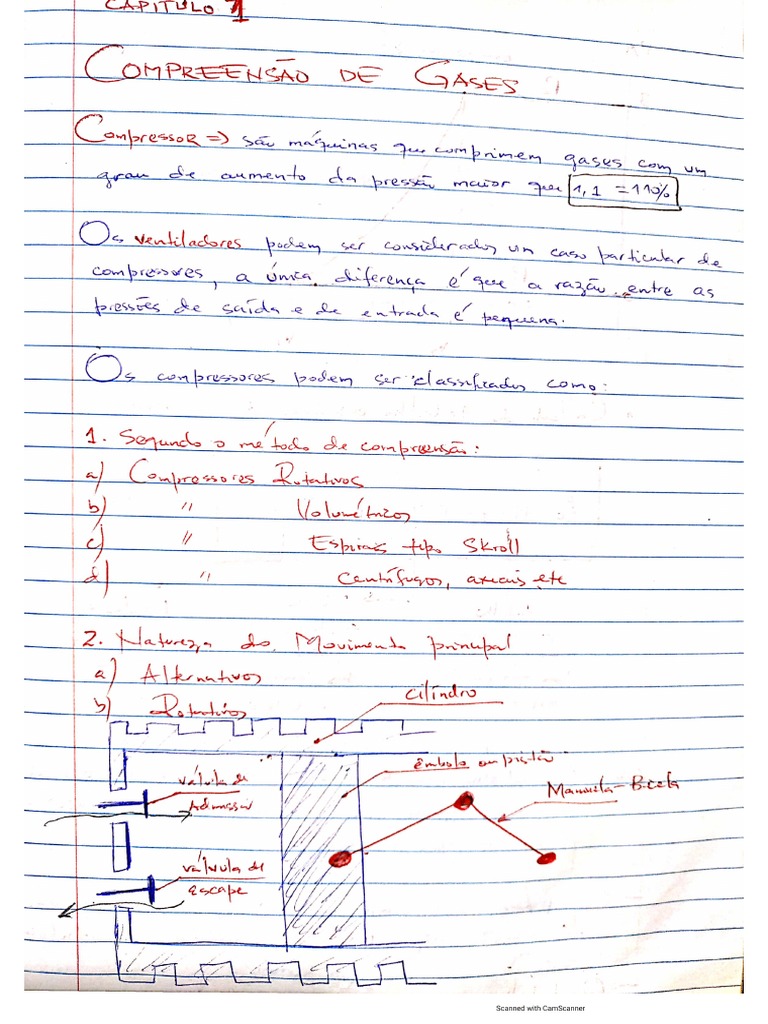 CAPITULO 1
COMPREENSÃO DE GASES
COMPRESSOR => são máquinas que comprimem gases com um
grau de aumento da pressão maior que 1,1 = 110%
Os ventiladores podem ser considerados um caso particular de
compressores, a única diferença é que a razão entre as
pressões de saída e de entrada é pequena.
Os compressores podem ser classificados como:
1. Segundo o método de compreensão:
a) Compressores Rotativos
b) " Volumétricos
c) " Espirais tipo Skroll
d) " Centrífugos, axiais, etc
2. Natureza do Movimento principal
a) Alternativos
b) Rotativos
cilíndro
êmbolo ou pistão
válvula de
Admissão
Manivela-Biela
válvula de
escape
Scanned with CamScanner